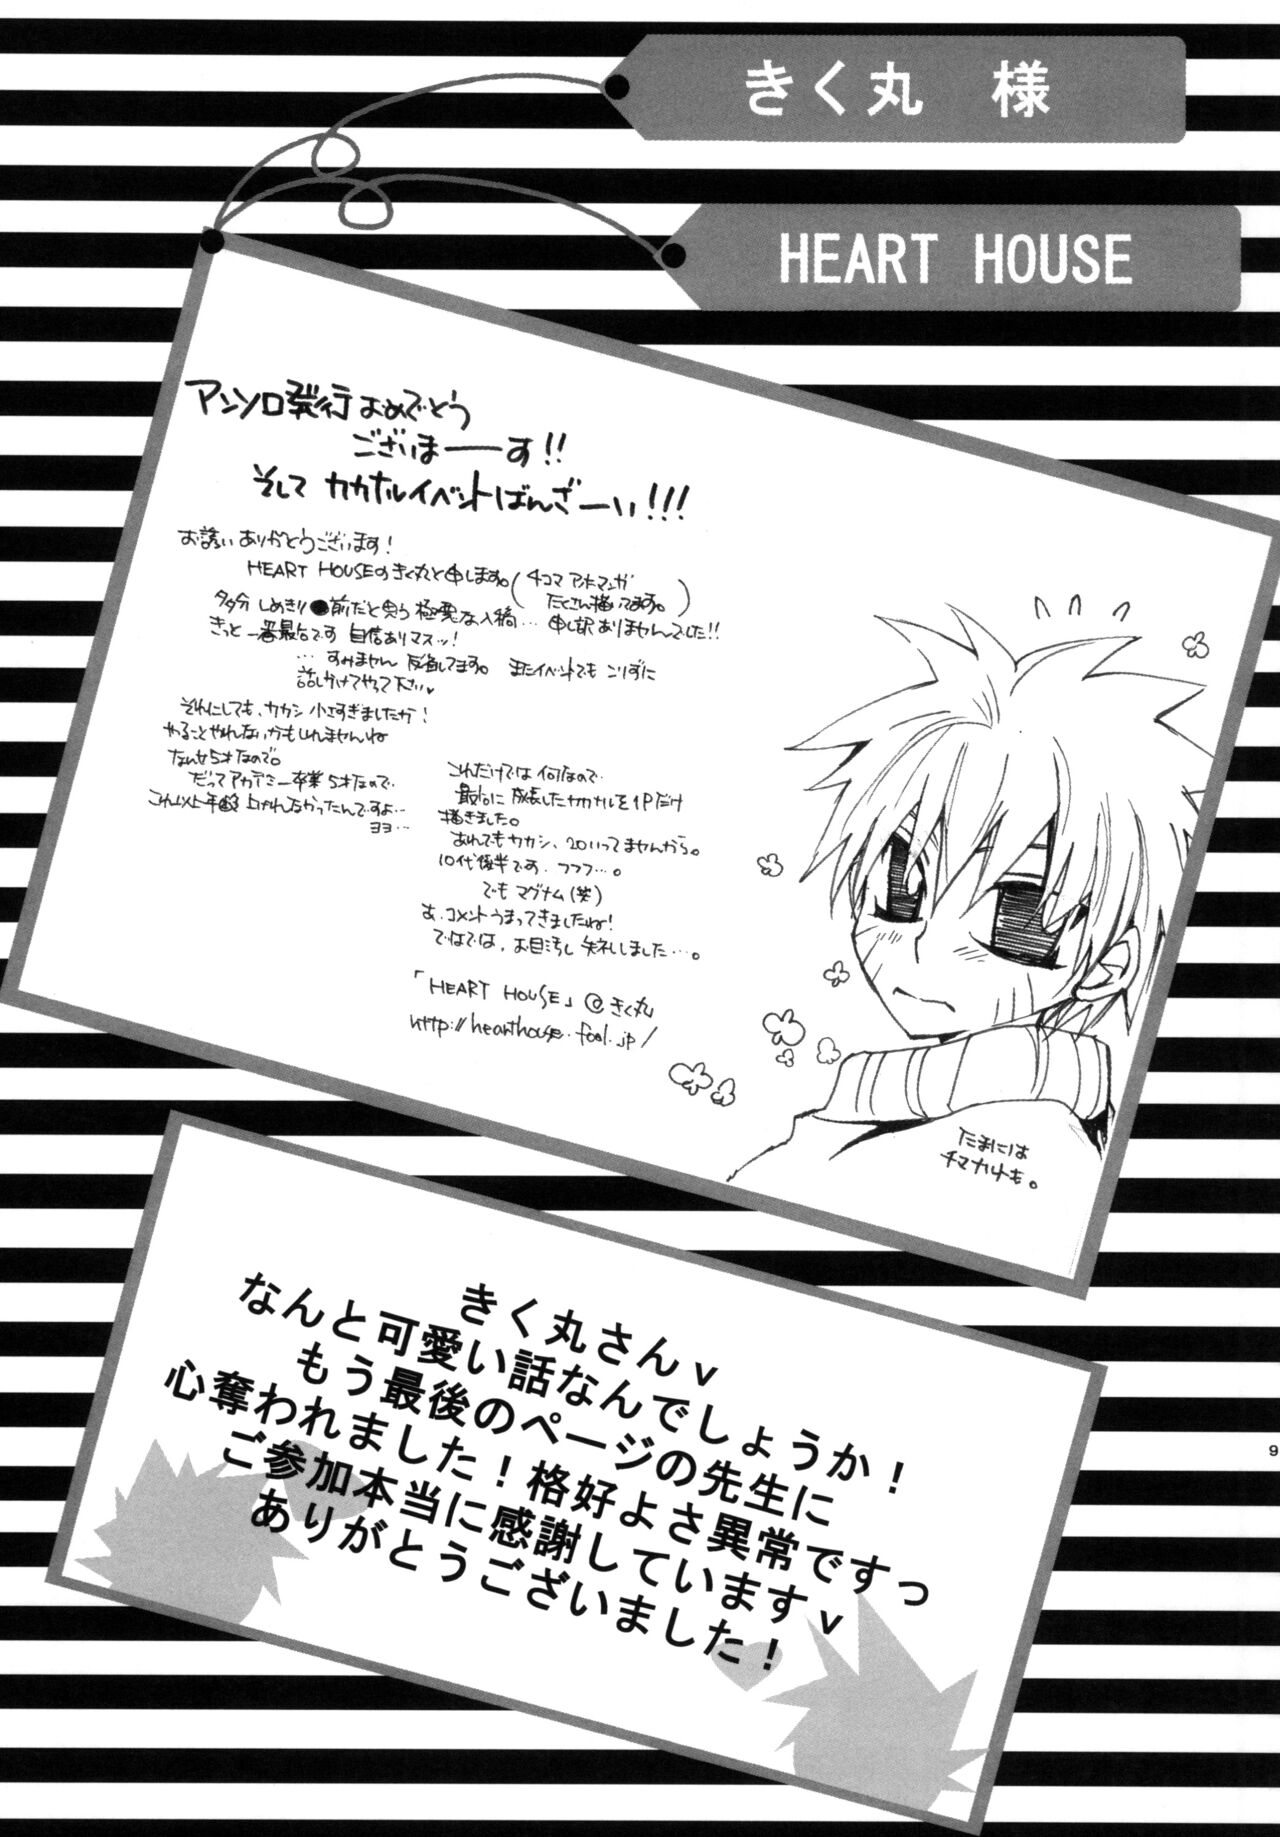 きく丸 様
HEART HOUSE
アンソロ発行おめでとう
ございまーーす!!
そして カカナルイベントばんざーい!!!
お誘いありがとうございます!
HEART HOUSEのきく丸と申します。(4コマ アホマンガ
たくさん描いてます。)
多分 しめきり●前だと思う 極悪な入稿… 申し訳ありませんでした!!
きっと 一番最后です 自信ありマスッ!
…すみません 反省してます。 またイベントでも こりずに
話しかけてやって下さい♥
それにしても、カカシ 小さすぎましたか!
やることやれないかもしれませんね
なんせ5才なので。
だってアカデミー卒業 5才なので…
これ以上年 上がれなかったんですよ…
ヨヨ…
これだけでは 何なので
最后に 成長したカカナルを1Pだけ
描きました。
あれでもカカシ、20いってませんから。
10代後半です。フフフ…。
でも マグナム(笑)
あ、コメントうまってきましたね!
ではでは、お目汚し 失礼しました…。
「HEART HOUSE」@きく丸
http://hearthouse.fool.jp/
たまには
きく丸さんv
なんと可愛い話なんでしょうか!
もう最後のページの先生に
心奪われました!格好よさ異常ですっ
ご参加本当に感謝していますv
ありがとうございました!
9